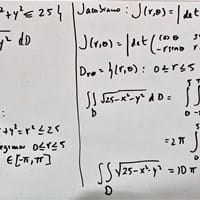 ² + y² ≤ 25 }
y² dD
+ y² = r² ≤ 25
0 ≤ r ≤ 5
∈ [-π, π]
Jacobiano: J(r,θ) = | det
J(r,θ) = | det ( cos θ
-r sin θ
D_rθ = { (r,θ) : 0 ≤ r ≤ 5
∬_D √25-x²-y² dD = ∫
= 2π ∫
∬_D √25-x²-y² = 10π